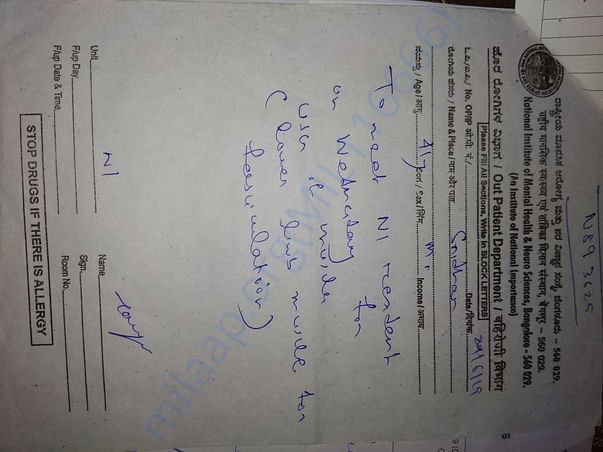 N893625
ರಾಷ್ಟ್ರೀಯ ಮಾನಸಿಕ ಆರೋಗ್ಯ ಮತ್ತು ನರ ವಿಜ್ಞಾನ ಸಂಸ್ಥೆ, ಬೆಂಗಳೂರು – 560 029.
राष्ट्रीय मानसिक स्वास्थ्य एवं तंत्रिका विज्ञान संस्थान, बेंगलूर – 560 029.
National Institute of Mental Health & Neuro Sciences, Bangalore - 560 029.
(An Institute of National Importance)
ಹೊರ ರೋಗಿಗಳ ವಿಭಾಗ / Out Patient Department / बहिरोगी विभाग
Please Fill All Sections, Write in BLOCK LETTERS
No. OP/IP ओ.पी. सं. Date/दिनांक 24/6/19
ರೋಗಿಯ ಹೆಸರು / Name & Place / नाम और पता Sridhar
ವಯಸ್ಸು / Age / आयु 41 ಲಿಂಗ / Sex / लिंग M Income / आय
To meet N1 resident
on Wednesday for
USG muscle
(lower limb muscle for
fasciculation)
N1
Unit
F/up Day
F/up Date & Time
Name
Sign.
Room No.
STOP DRUGS IF THERE IS ALLERGY
milaap.org